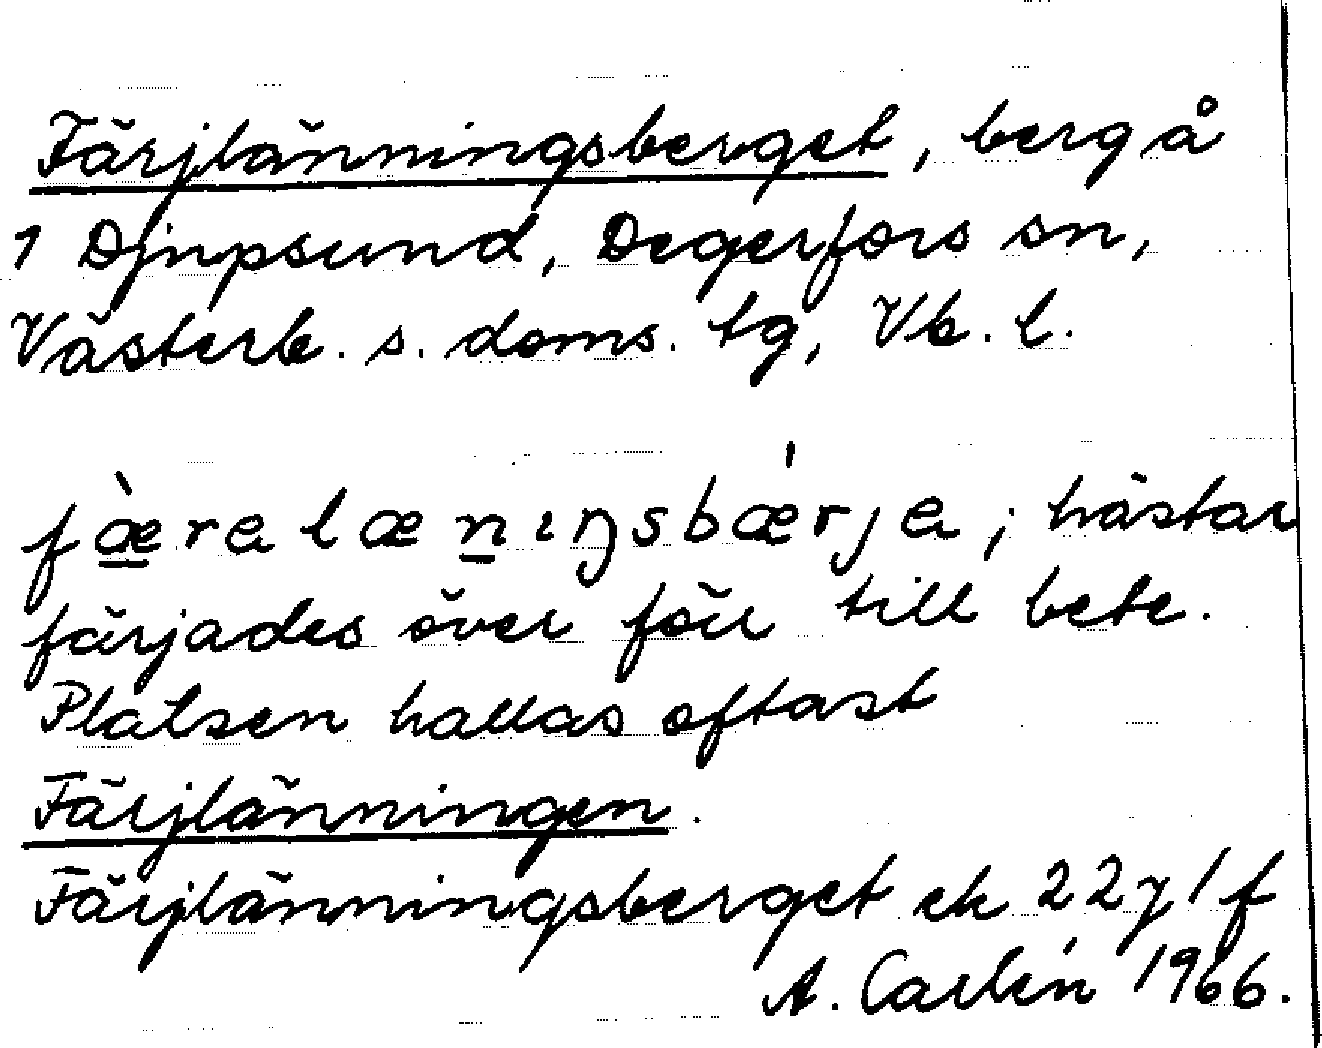 Färjlänningsberget, berg å
1 Djupsund, Degerfors sn,
Västerb. s. doms. tg, Vb. l.
fæ̀relæniŋsbǽrje; hästar
färjades över förr till bete.
Platsen kallas oftast
Färjlänningen.
Färjlänningsberget ek 22 7 1 f
A. Carlén 1966.